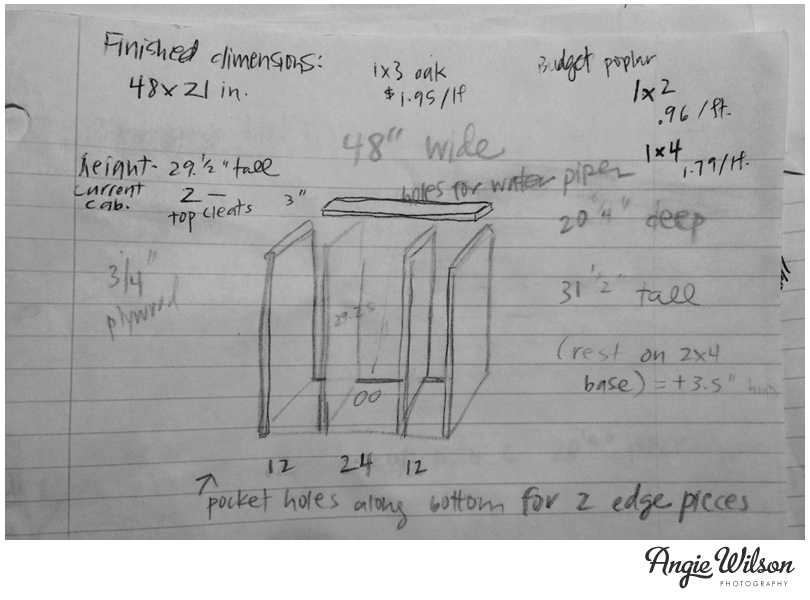 Finished dimensions:
48x21 in.
1x3 oak
$1.95/lf
Budget poplar
1x2
.96/ft.
1x4
1.79/lf.
48" wide
height- 29 1/2" tall
current cab.
2 —
top cleats
3"
holes for water pipes
20 1/4" deep
3/4"
plywood
29.25
31 1/2" tall
(rest on 2x4
base) = +3.5"
00
12 24 12
↗ pocket holes along bottom for 2 edge pieces
Angie Wilson
PHOTOGRAPHY